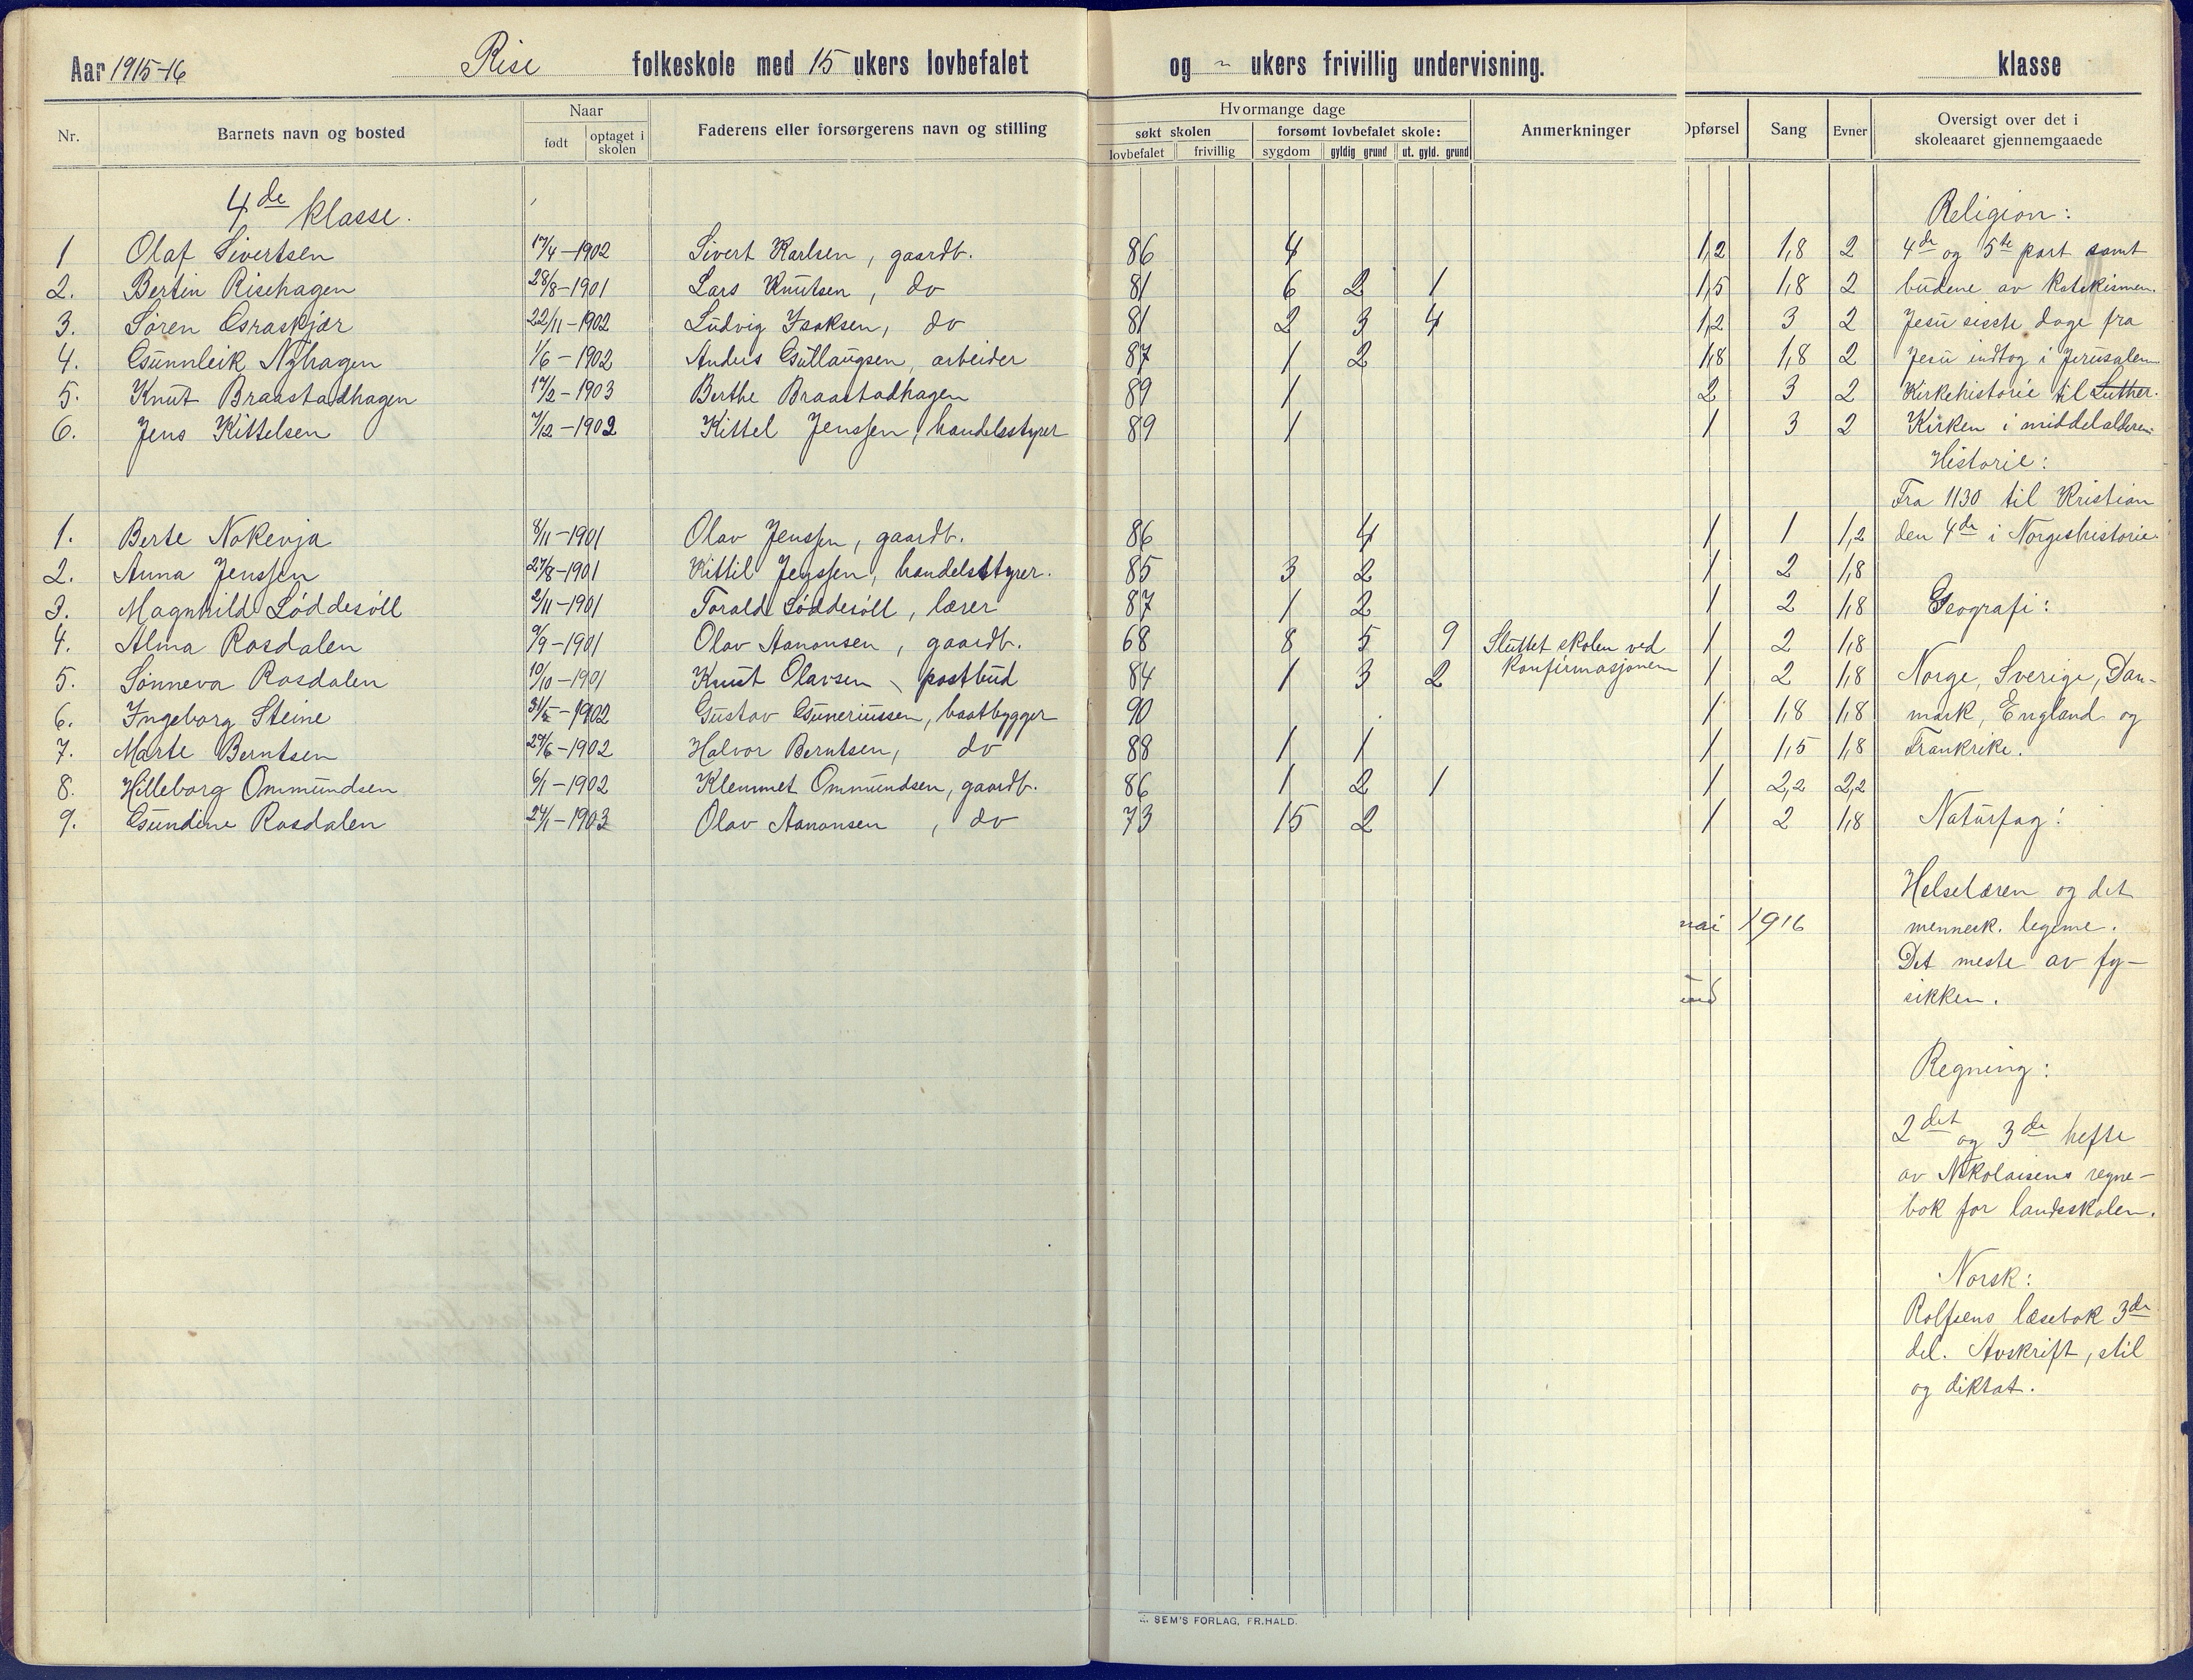 Aar 1915-16 Rise folkeskole med 15 ukers lovbefalet og - ukers frivillig undervisning. klasse
Nr. Barnets navn og bosted Naar født optaget i skolen Faderens eller forsørgerens navn og stilling Hvormange dage søkt skolen lovbefalet frivillig forsømt lovbefalet skole: sygdom gyldig grund ut. gyld. grund Anmerkninger Opførsel Sang Evner Oversigt over det i skoleaaret gjennemgaaede
4de klasse. Religion:
1 Olaf Sivertsen 17/4-1902 Sivert Karlsen, gaardb. 86 4 1,2 1,8 2 4de og 5te part samt
2. Bertin Risehagen 28/8-1901 Lars Knutsen, do 81 6 2 1 1,5 1,8 2 budene av katekismen.
3. Søren Graskjær 22/11-1902 Ludvig Isaksen, do 81 2 3 4 1,2 3 2 Jesu sisste dage fra
4. Gunnleik Nyhagen 1/6-1902 Anders Gutlaugsen, arbeider 87 1 2 1,8 1,8 2 Jesu indtog i Jerusalem
5. Knut Braastadhagen 17/2-1903 Berthe Braastadhagen 89 1 2 3 2 Kirkehistorie til Luther.
6. Jens Kittelsen 7/12-1902 Kittel Jenssen, handelsstyrer 89 1 1 3 2 Kirken i middelalderen.
Historie:
Fra 1130 til Kristian
1. Berte Nokenja 8/11-1901 Olav Jenssen, gaardb. 86 4 1 1 1,2 den 4de i Norgeshistorie.
2. Anna Jenssen 27/8-1901 Kittil Jenssen, handelsstyrer. 85 3 2 1 2 1,8
3. Magnhild Løddesøll 2/11-1901 Torald Løddesøll, lærer 87 1 2 1 2 1,8 Geografi:
4. Alma Rosdalen 9/9-1901 Olav Aanonsen, gaardb. 68 8 5 9 Sluttet skolen ved 1 2 1,8
5. Sønneva Rosdalen 10/10-1901 Knut Olavsen, postbud 84 1 3 2 konfirmasjonen 1 2 1,8 Norge, Sverige, Dan-
6. Ingeborg Steine 31/5-1902 Gustav Guneriussen, baatbygger 90 1 1,8 1,8 mark, England og
7. Marte Berntsen 29/6-1902 Halvor Berntsen, do 88 1 1 1 1,5 1,8 Frankrike.
8. Hilleborg Ommundsen 6/1-1902 Klemmet Ommundsen, gaardb. 86 1 2 1 1 2,2 2,2
9. Gundine Rosdalen 24/1-1903 Olav Aanonsen, do 73 15 2 1 2 1,8 Naturfag:
Helselæren og det
mai 1916 mennesk. legeme.
Det meste av fy-
sikken.
Regning:
2det og 3de hefte
av Nikolaisens regne-
bok for landsskolen.
Norsk:
Rolfsens læsebok 3de
del. Avskrift, stil
og diktat.
SEM'S FORLAG, FR.HALD.